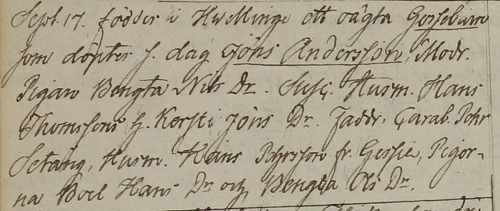 Sept. 17. födder i Hwellinge ett oägta Gossebarn
som döptes s. dag Jöns Andersson, Modr.
Pigan Bengta Nils Dr. Susc. Husm. Hans
Thomssons h. Kersti Jöns Dr. Faddr. Carab. Pehr
Setång, Husm. Hans Pehrsson fr. Gessie, Pigor-
na Boel Hans Dr och Bengta Ols Dr.